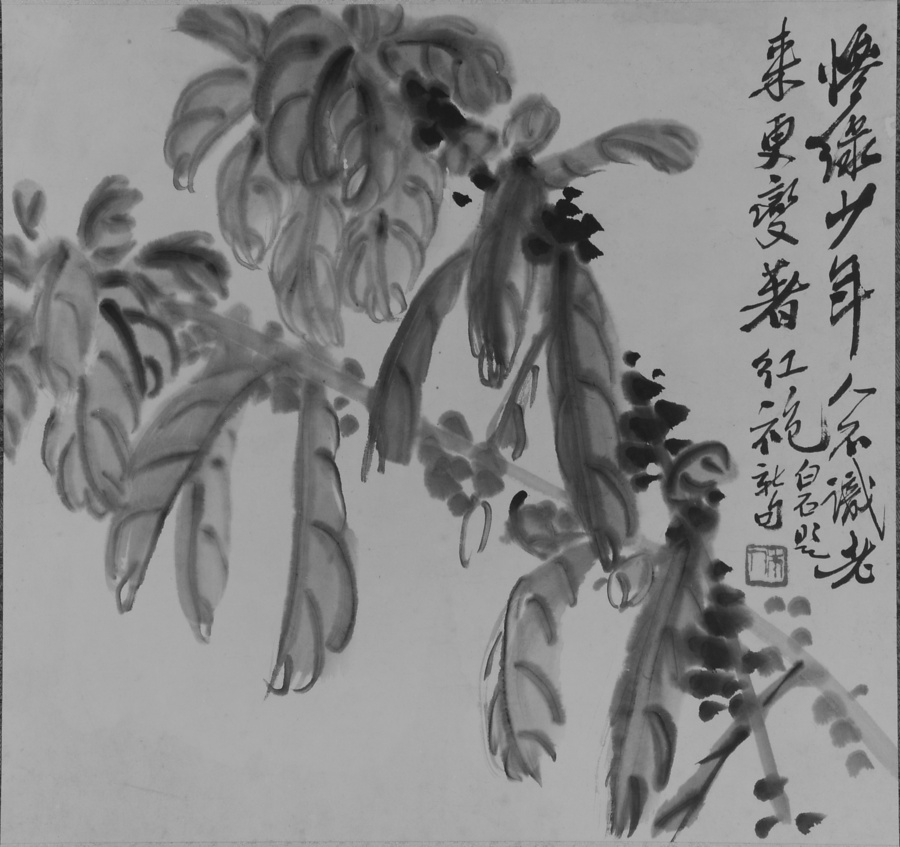 慘綠少年人不識老
來更變著紅袍
白石題
新句